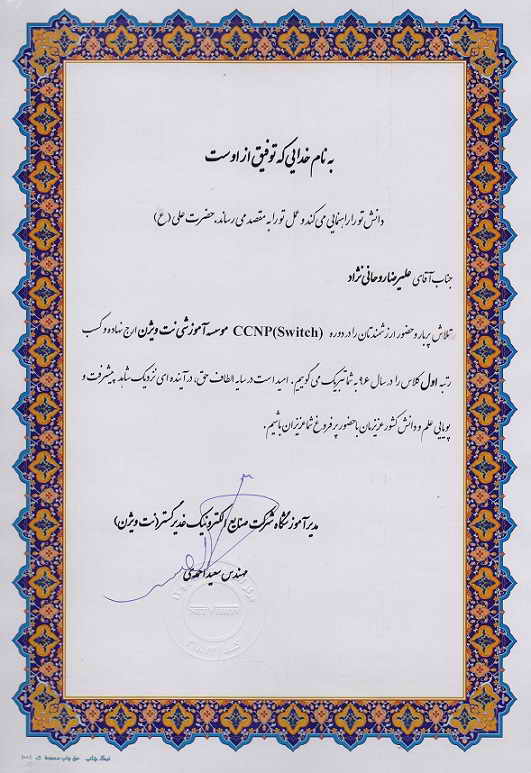 به نام خدایی که توفیق از اوست
دانش تو را راهنمایی می کند و عمل تو را به مقصد می رساند، حضرت علی (ع)
جناب آقای علیرضا روحانی نژاد
تلاش پربار و حضور ارزشمندتان را در دوره CCNP(Switch) موسسه آموزشی نت ویژن ارج نهاده و کسب
رتبه اول کلاس را در سال ۹۶ به شما تبریک می گوییم. امید است در سایه الطاف حق، در آینده ای نزدیک شاهد پیشرفت و
پویایی علم و دانش کشور عزیزمان با حضور پر فروغ شما عزیزان باشیم.
مدیر آموزشگاه شرکت صنایع الکترونیک غدیر گستر (نت ویژن)
مهندس سعید احمدی